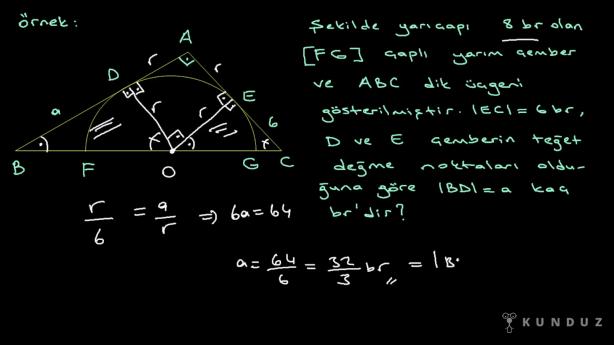 örnek:
Şekilde yarıçapı 8 br olan
[FG] çaplı yarım çember
ve ABC dik üçgeni
gösterilmiştir. |EC| = 6 br,
D ve E çemberin teğet
değme noktaları oldu-
ğuna göre |BD| = a kaç
br'dir?
A
r
r
D
E
a
r
r
6
x
x
B
F
O
G
C
r/6 = a/r ⇒ 6a = 64
a = 64/6 = 32/3 br = |B
KUNDUZ